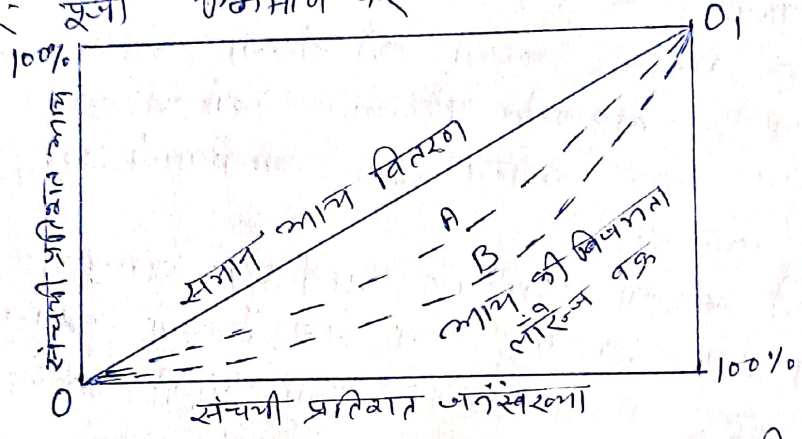 100%
O₁
संचयी प्रतिशत आय
समान आय वितरण
A
B
आय की विषमता
लॉरेन्ज वक्र
100%
O
संचयी प्रतिशत जनसंख्या